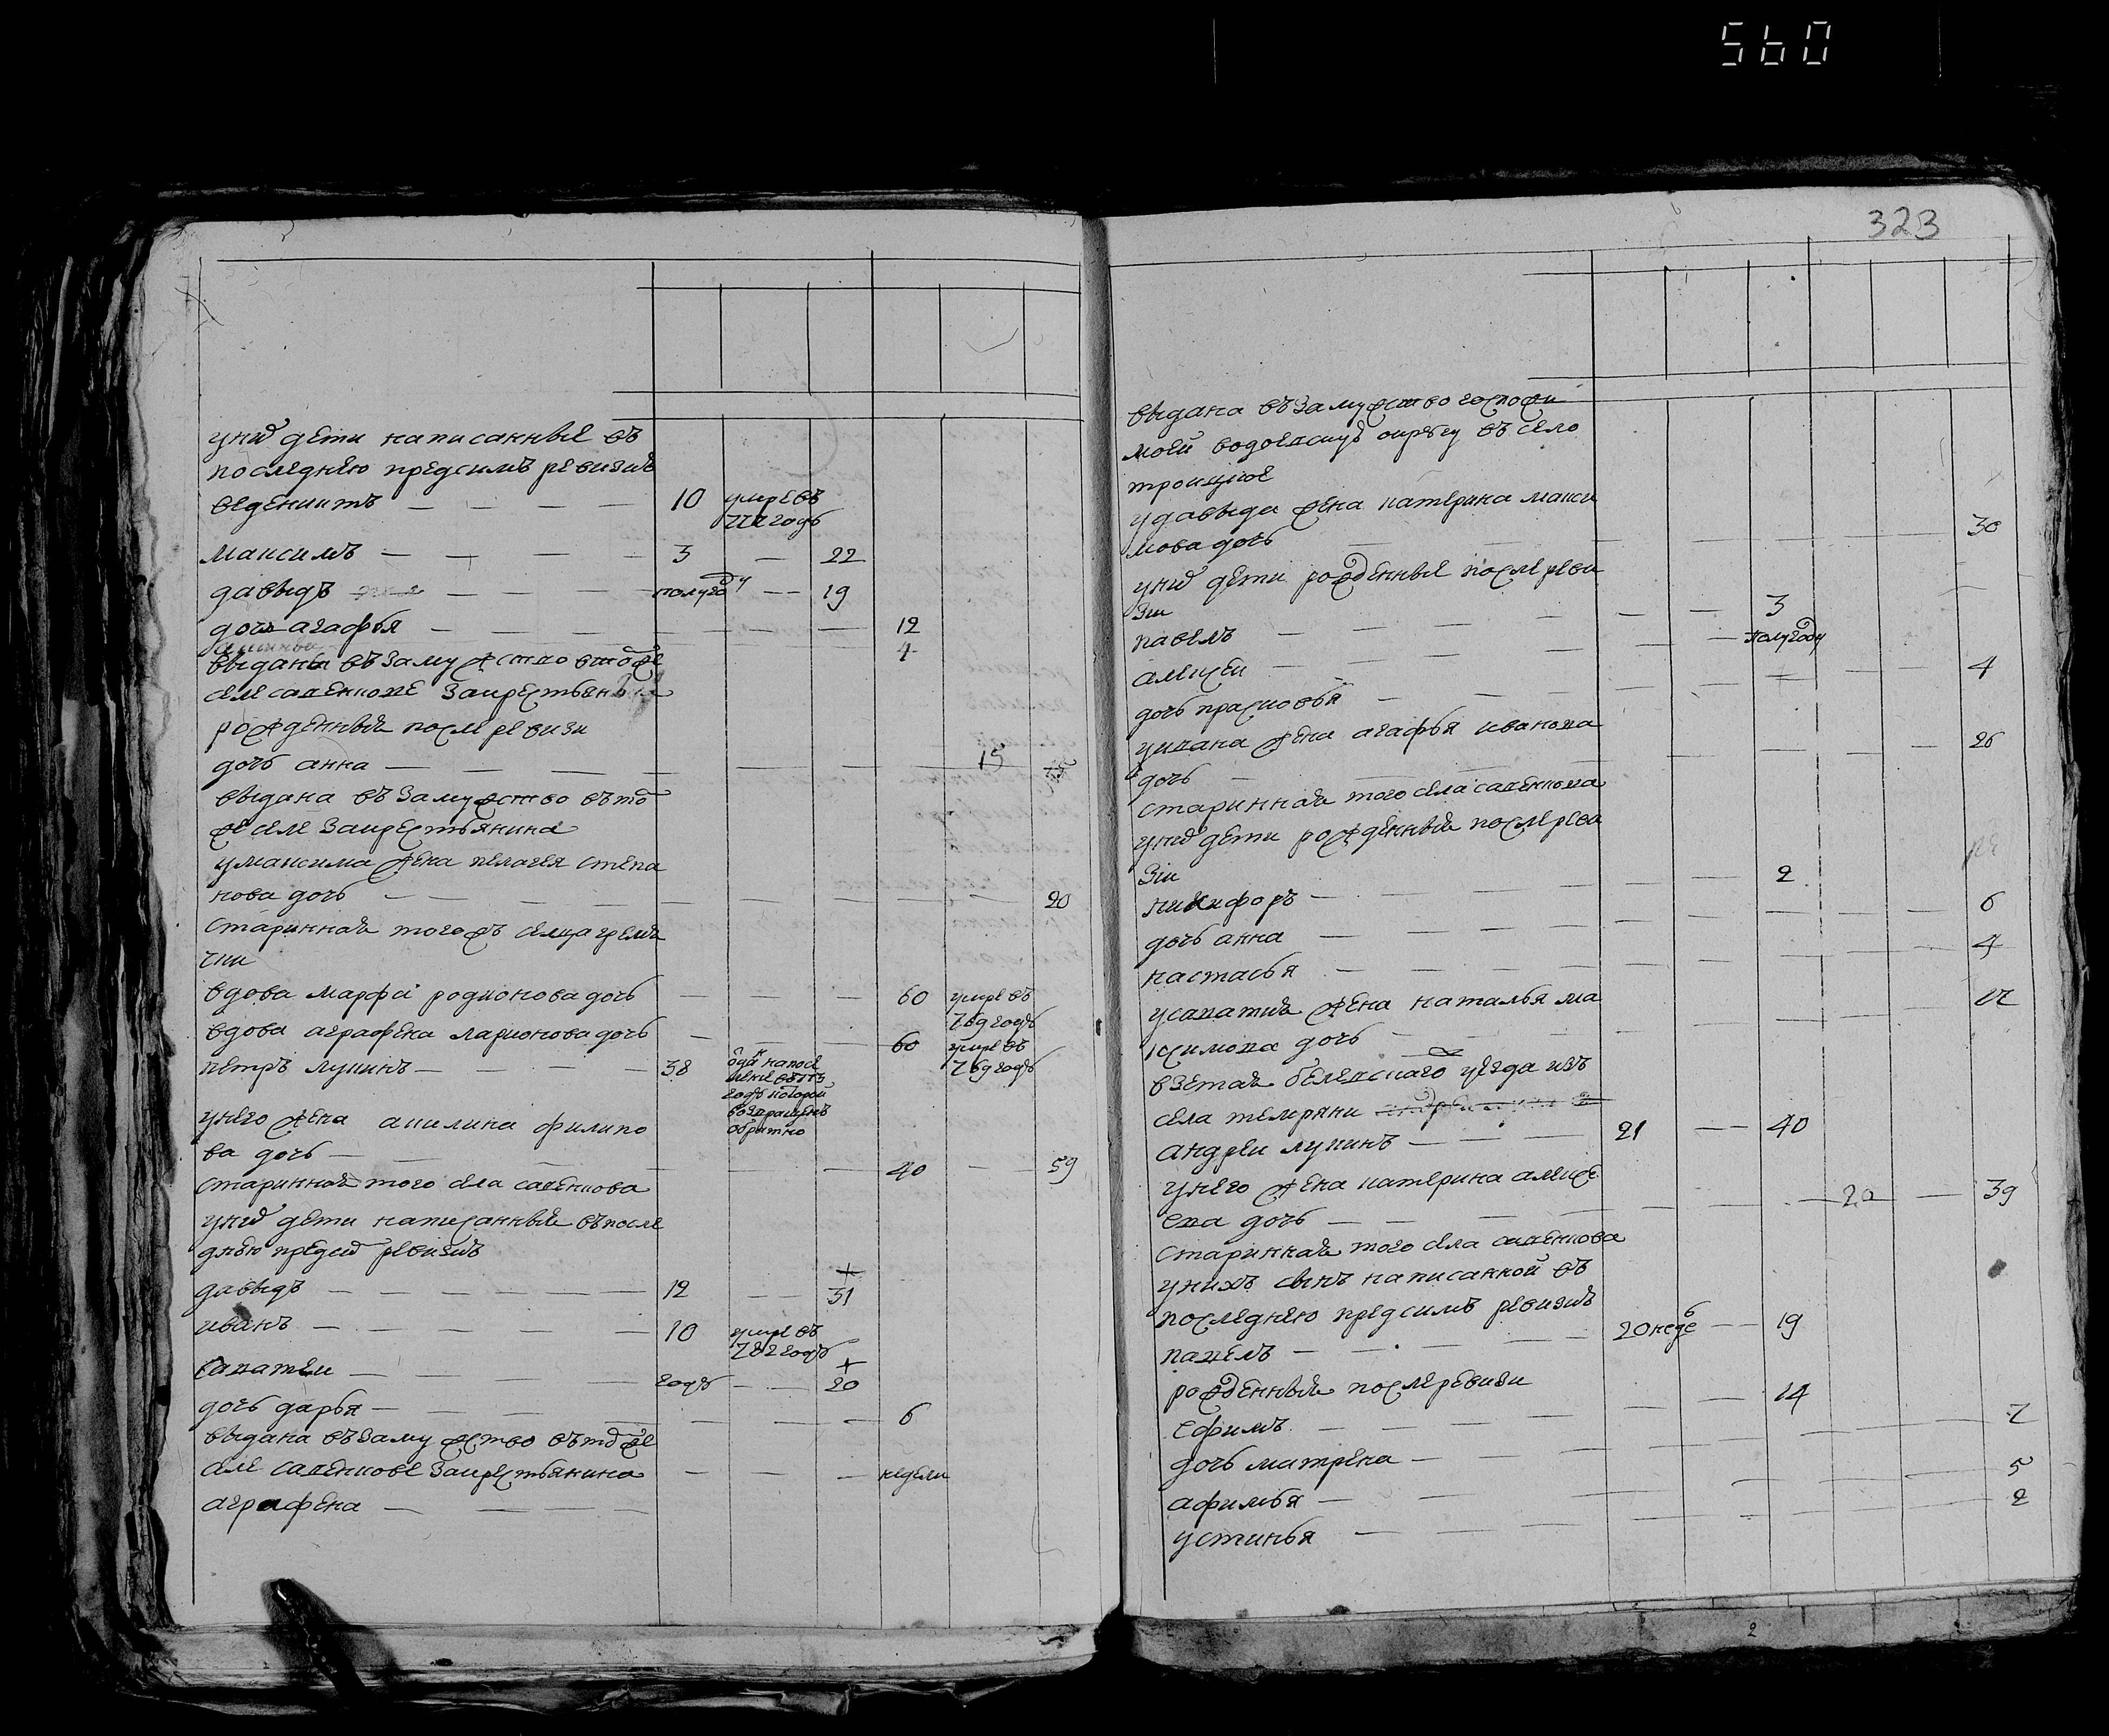 560
323
у них дети написанные въ
последнюю пред симъ ревизию
веденихтъ 10 умре въ
777 году
максимъ 3 22
давыдъ полугоду 19
дочь агафья 12
4
выданы въ замужство в тоже
селе саленкове за крестьянъ
рожденныя после ревизи
дочь анна 15
выдана въ замужство въ то
же селе за крестьянина
у максима жена пелагея степа
нова дочь 20
старинная того жъ селца гремя
чки
вдова марфа родионова дочь 60 умре въ
769 году
вдова аграфена ларионова дочь 60 умре въ
769 году
петръ лукинъ 38
годъ которои
возвращенъ
обратно
у него жена акилина филипо
ва дочь 40 59
стариннои того села саленкова
у них дети написанныя въ после
днею пред сию ревизию
давыдъ 12 31
иванъ 10 умре въ
782 году
сапатеи году 20
дочь дарья 6
выдана въ замужство въ тоже
селе саленкове за крестьянина
аграфена недели
выдана въ замужство госпожи
моей округу въ село
троицкое
у давыда жена катерина макси
мова дочь 30
у них дети рожденные после реви
зии
павелъ 3
алексеи полугоду
дочь прасковья 4
у ивана жена агафья иванова
дочь 26
старинная того села саленкова
у них дети рожденныя после реви
зии
никифоръ 2
дочь анна 6
настасья 4
у сапатия жена наталья ма
ксимова дочь 22
взетая белевскаго уезда изъ
села темряни
андреи лукинъ 21 40
у него жена катерина алексе
ева дочь 20 39
старинная того села саленкова
у нихъ сынъ написанной въ
последнюю пред симъ ревизию
павелъ 20 недель 19
рожденныя после ревизи
ефимъ 14
дочь матрена 7
афимья 5
устинья 2
2